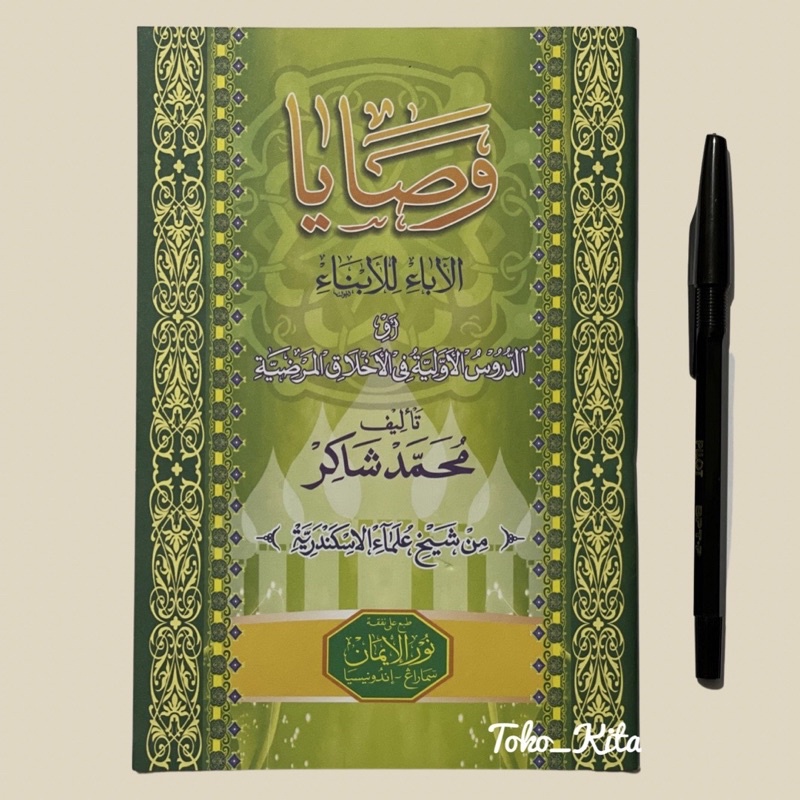 وَصَايَا
الْآبَاءِ لِلْأَبْنَاءِ
أَوْ
الدُّرُوْسُ الْأَوَّلِيَّةُ فِى الْأَخْلَاقِ الْمَرْضِيَّةِ
تَأْلِيف
مُحَمَّدْ شَاكِرْ
مِنْ شَيْخِ عُلَمَاءِ الْاِسْكَنْدَرِيَّةِ
طبع على نفقة
نُوْرُ الْإِيْمَانْ
سَمَارَاڠْ - إندونيسيا
PILOT
Toko_Kita